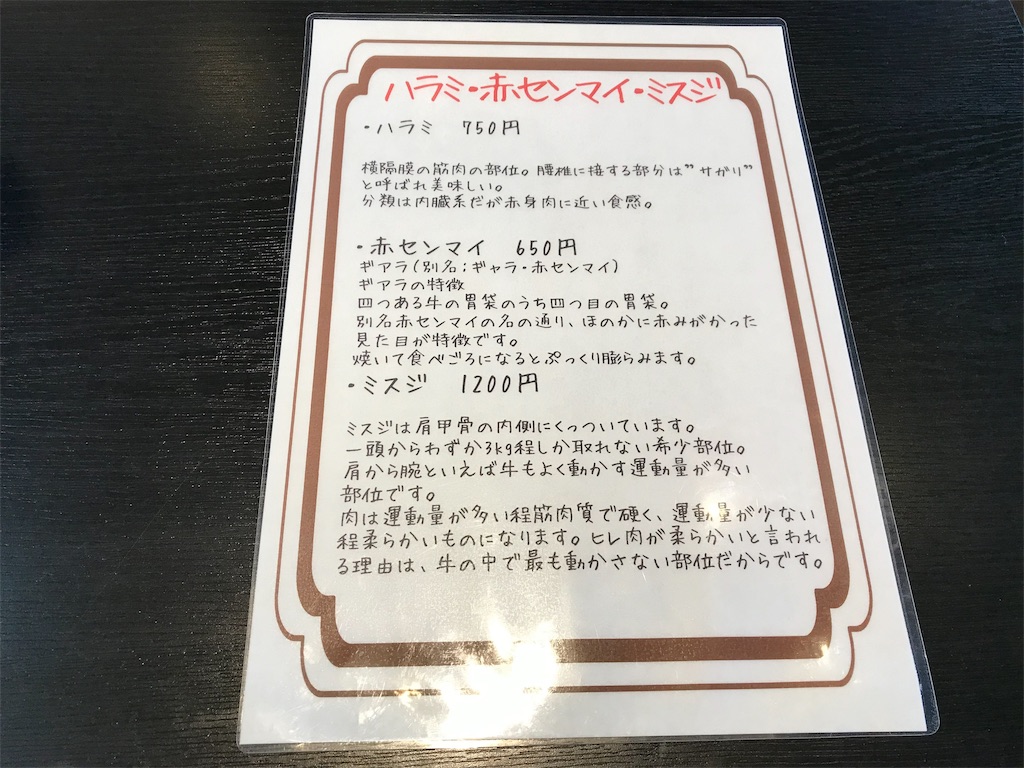 ハラミ・赤センマイ・ミスジ
・ハラミ 750円
横隔膜の筋肉の部位。腰椎に接する部分は”サガリ”
と呼ばれ美味しい。
分類は内臓系だが赤身肉に近い食感。
・赤センマイ 650円
ギアラ(別名;ギャラ・赤センマイ)
ギアラの特徴
四つある牛の胃袋のうち四つ目の胃袋。
別名赤センマイの名の通り、ほのかに赤みがかった
見た目が特徴です。
焼いて食べごろになるとぷっくり膨らみます。
・ミスジ 1200円
ミスジは肩甲骨の内側にくっついています。
一頭からわずか3kg程しか取れない希少部位。
肩から腕といえば牛もよく動かす運動量が多い
部位です。
肉は運動量が多い程筋肉質で硬く、運動量が少ない
程柔らかいものになります。ヒレ肉が柔らかいと言われ
る理由は、牛の中で最も動かさない部位だからです。